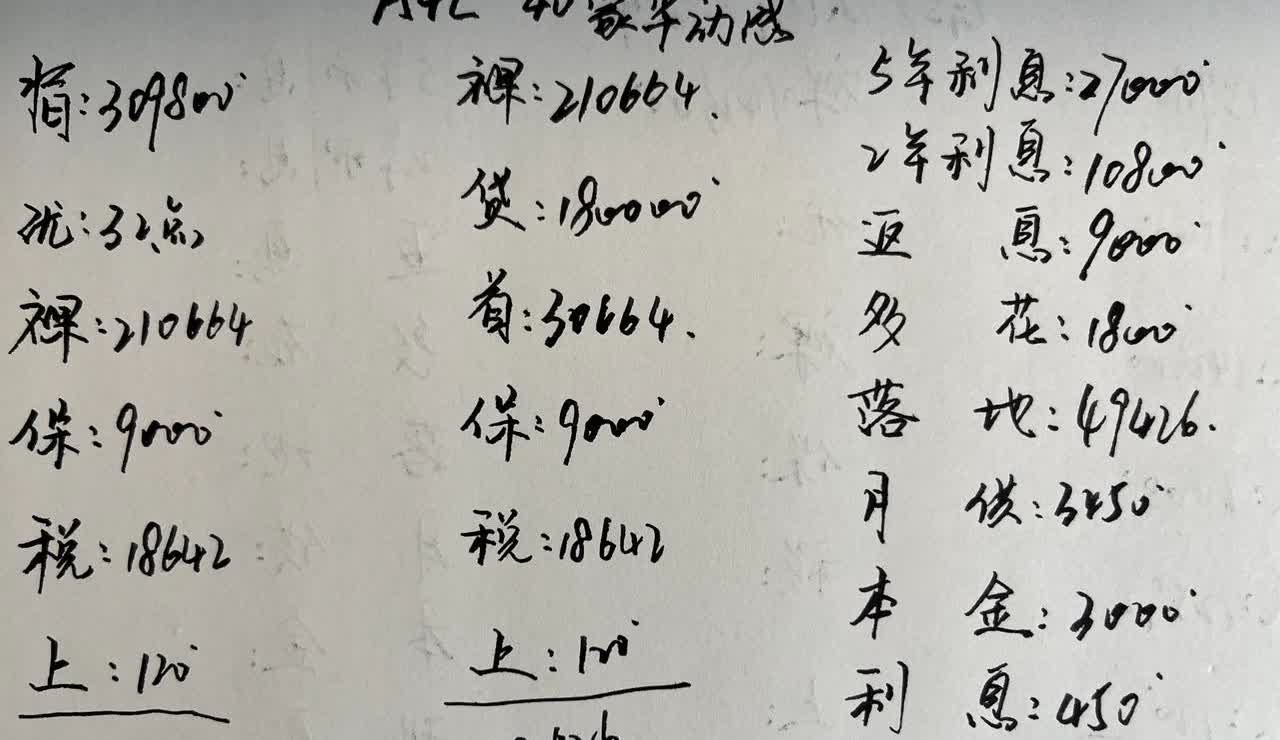 A4L 40 豪华动感
指:309800
优:32点
裸:210664
保:9000
税:18642
上:120
裸:210664.
贷:180000
首:30664.
保:9000
税:18642
上:120
5年利息:27000
2年利息:10800
返息:9000
多花:1800
落地:49426.
月供:3450
本金:3000
利息:450